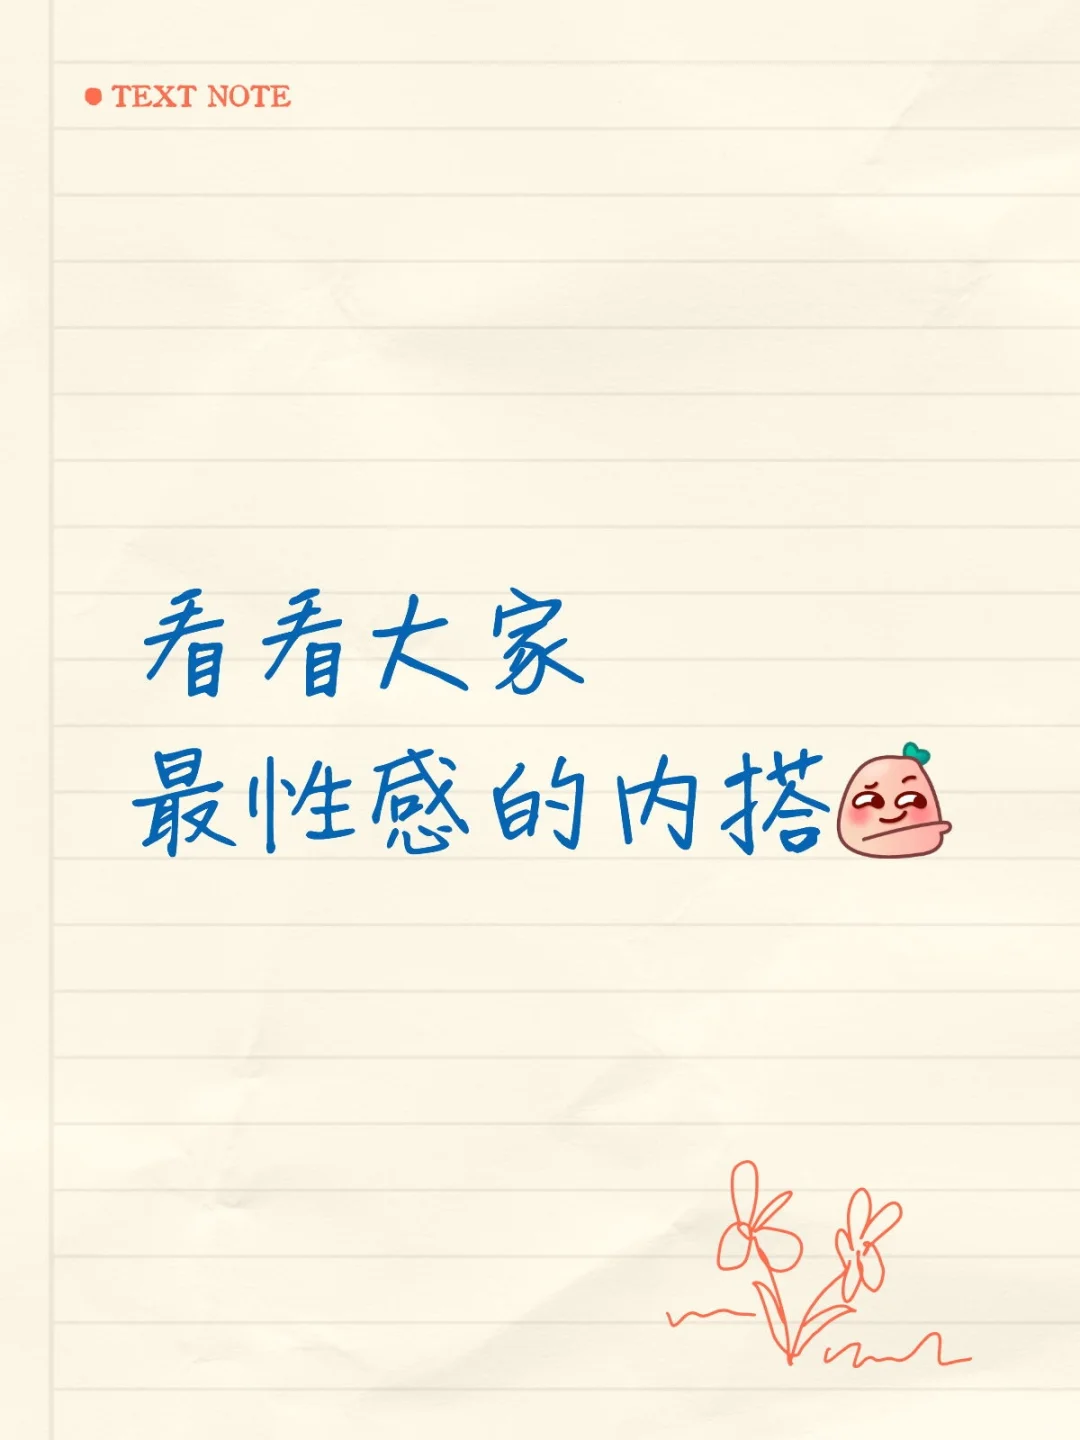 TEXT NOTE
看看大家
最性感的内搭